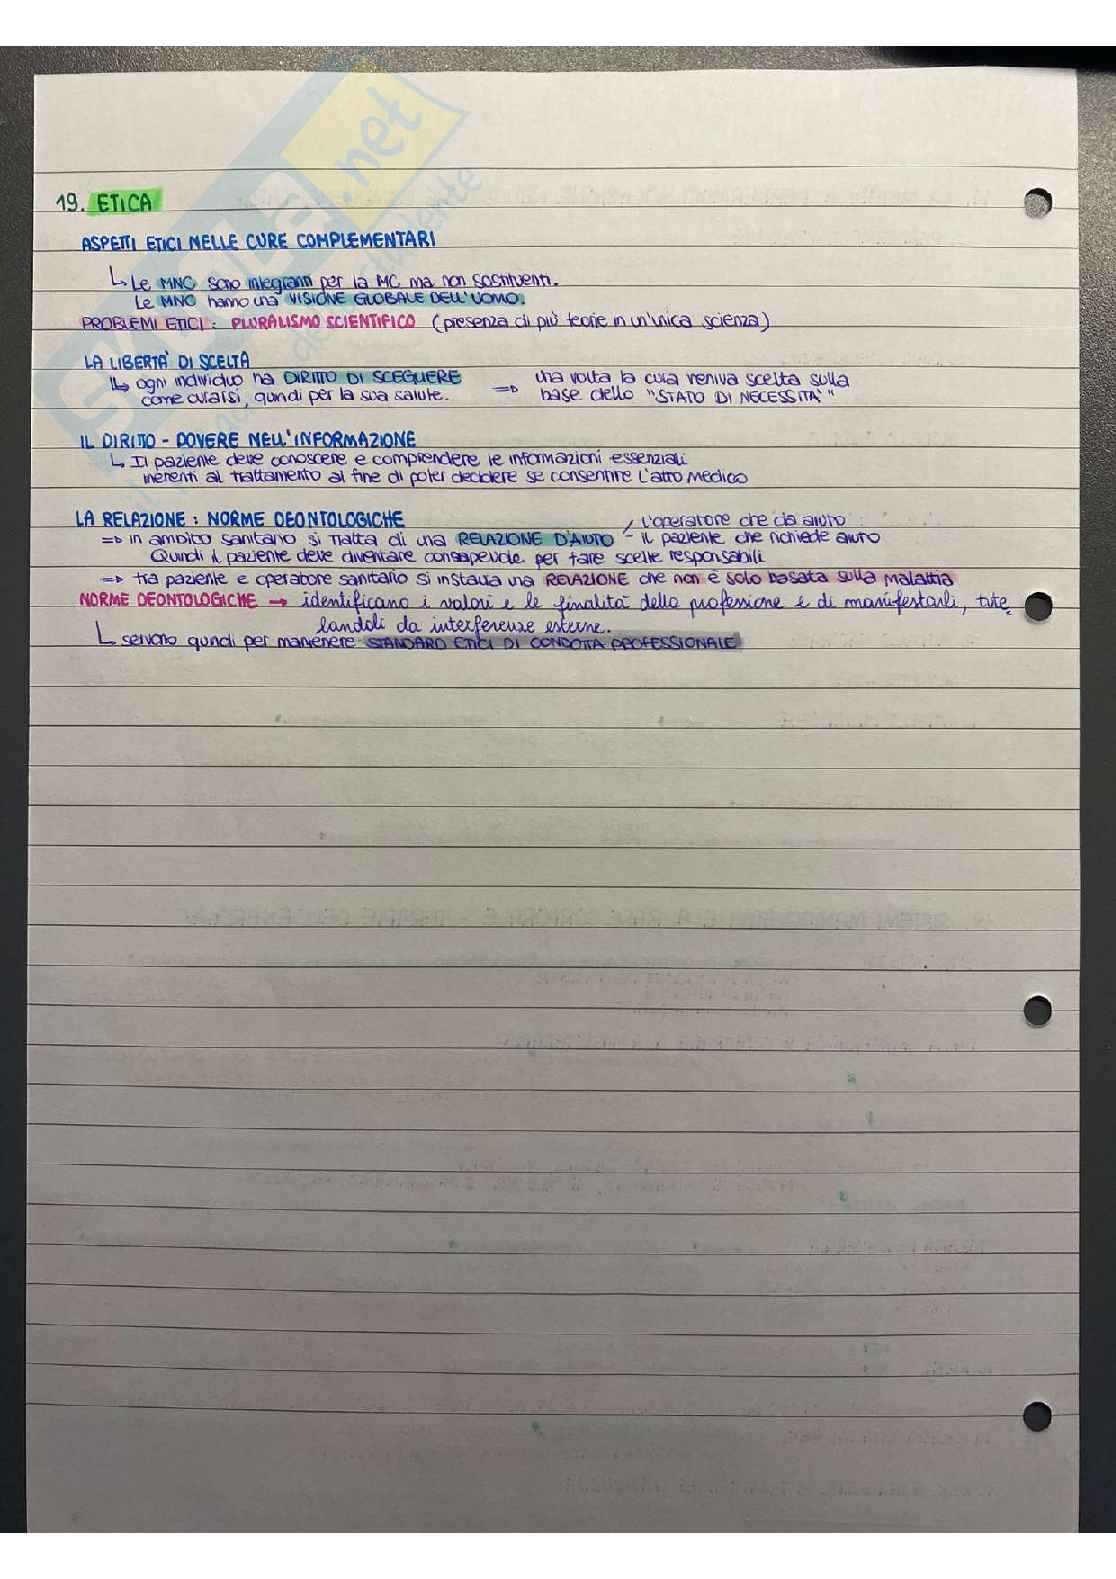 19. ETICA
ASPETTI ETICI NELLE CURE COMPLEMENTARI
↳ Le MNC sono integranti per la MC ma non sostituenti.
Le MNC hanno una VISIONE GLOBALE DELL'UOMO.
PROBLEMI ETICI: PLURALISMO SCIENTIFICO (presenza di più teorie in un'unica scienza)
LA LIBERTA' DI SCELTA
↳ ogni individuo ha DIRITTO DI SCEGLIERE => una volta la cura veniva scelta sulla
come curarsi, quindi per la sua salute. base dello "STATO DI NECESSITA'"
IL DIRITTO - DOVERE NELL'INFORMAZIONE
↳ Il paziente deve conoscere e comprendere le informazioni essenziali
inerenti al trattamento al fine di poter decidere se consentire l'atto medico
LA RELAZIONE: NORME DEONTOLOGICHE / l'operatore che dà aiuto
=> in ambito sanitario si tratta di una RELAZIONE D'AIUTO - il paziente che richiede aiuto
Quindi il paziente deve diventare consapevole per fare scelte responsabili
=> tra paziente e operatore sanitario si instaura una RELAZIONE che non è solo basata sulla malattia
NORME DEONTOLOGICHE → identificano i valori e le finalità della professione e di manifestarli, tute
landoli da interferenze esterne.
↳ servono quindi per mantenere STANDARD ETICI DI CONDOTTA PROFESSIONALE